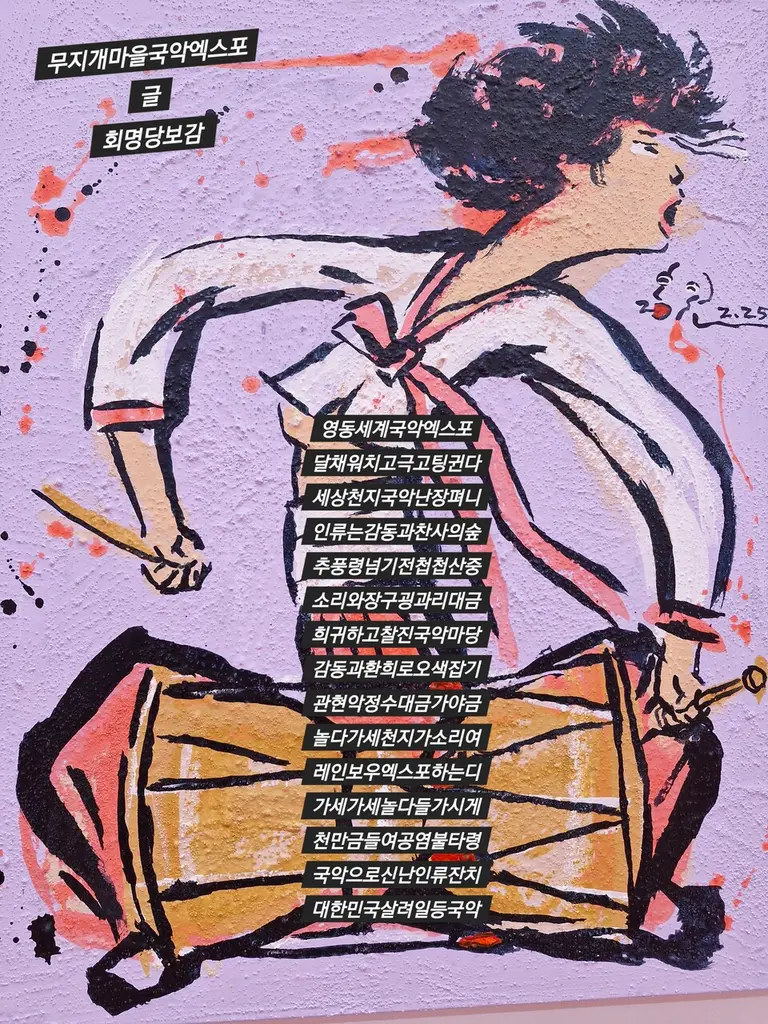 무지개마을국악엑스포
글
회명당보감
2.25
영동세계국악엑스포
달채워치고극고팅권다
세상천지국악난장펴니
인류는감동과찬사의숲
추풍령넘기전첩첩산중
소리와장구굉과리대금
희귀하고찰진국악마당
감동과환희로오색잡기
관현악정수대금가야금
놀다가세천지가소리여
레인보우엑스포하는디
가세가세놀다들가시게
천만금들여공염불타령
국악으로신난인류잔치
대한민국살려일등국악